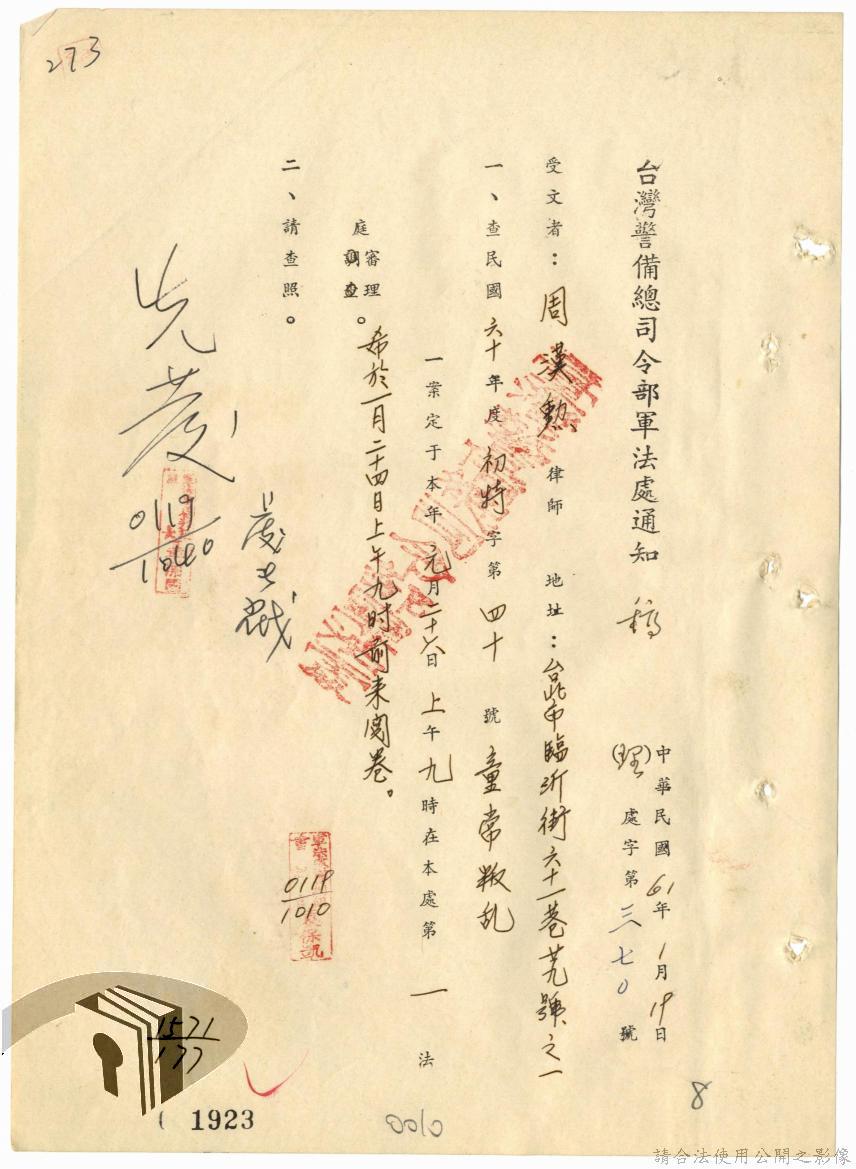 273
台灣警備總司令部軍法處通知 稿
中華民國61年1月19日
(理)處字第三七0號
受文者：周漢勲律師 地址：台北市臨沂街六十一巷廿九號之一
一、查民國六十年度初特字第四十號童常叛乱
一案定于本年元月二十六日上午九時在本處第一法
庭審理調查。希於一月二十四日上午九時前來閱卷。
二、請查照。
先發
0119
1040
0119
1010
1571
177
1923
0010
8
請合法使用公開之影像